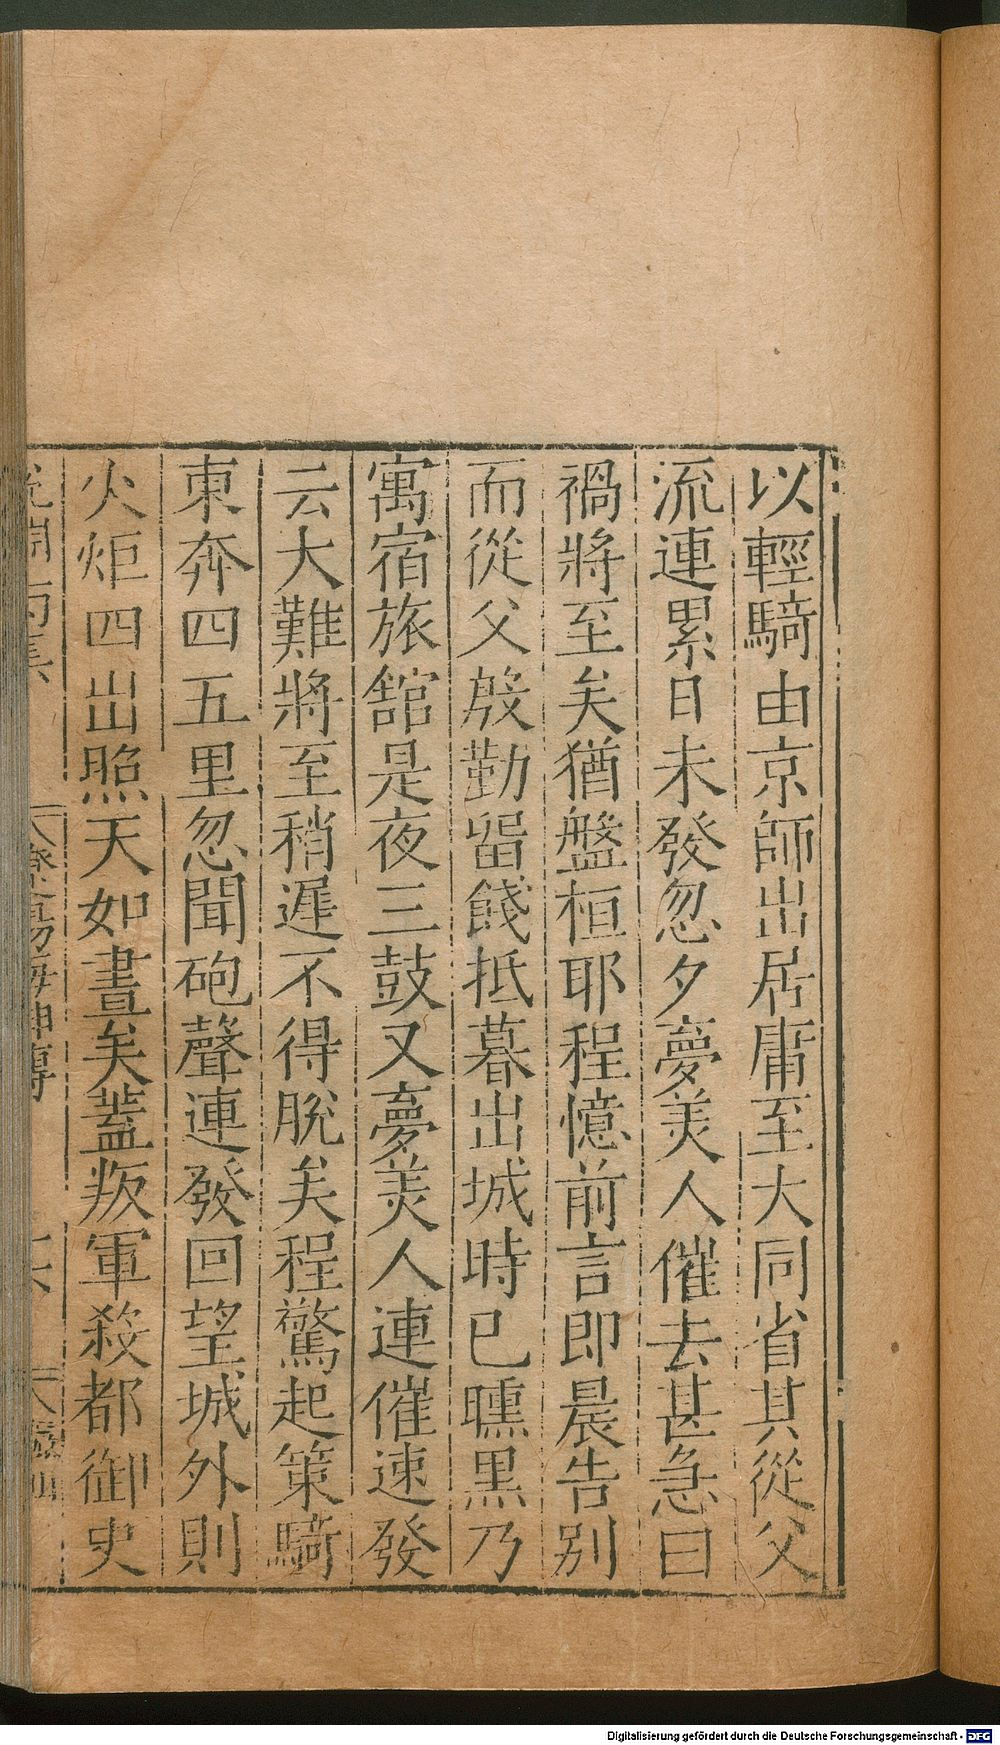 以輕騎由京師出居庸至大同省其從父
流連累日未發忽夕夢美人催去甚急曰
禍將至矣猶盤桓耶程憶前言即晨告別
而從父殷勤留餞抵暮出城時已曛黑乃
寓宿旅館是夜三鼓又夢美人連催速發
云大難將至稍遲不得脫矣程驚起策騎
東奔四五里忽聞砲聲連發回望城外則
火炬四出照天如晝矣蓋叛軍殺都御史
Digitalisierung gefördert durch die Deutsche Forschungsgemeinschaft - DFG